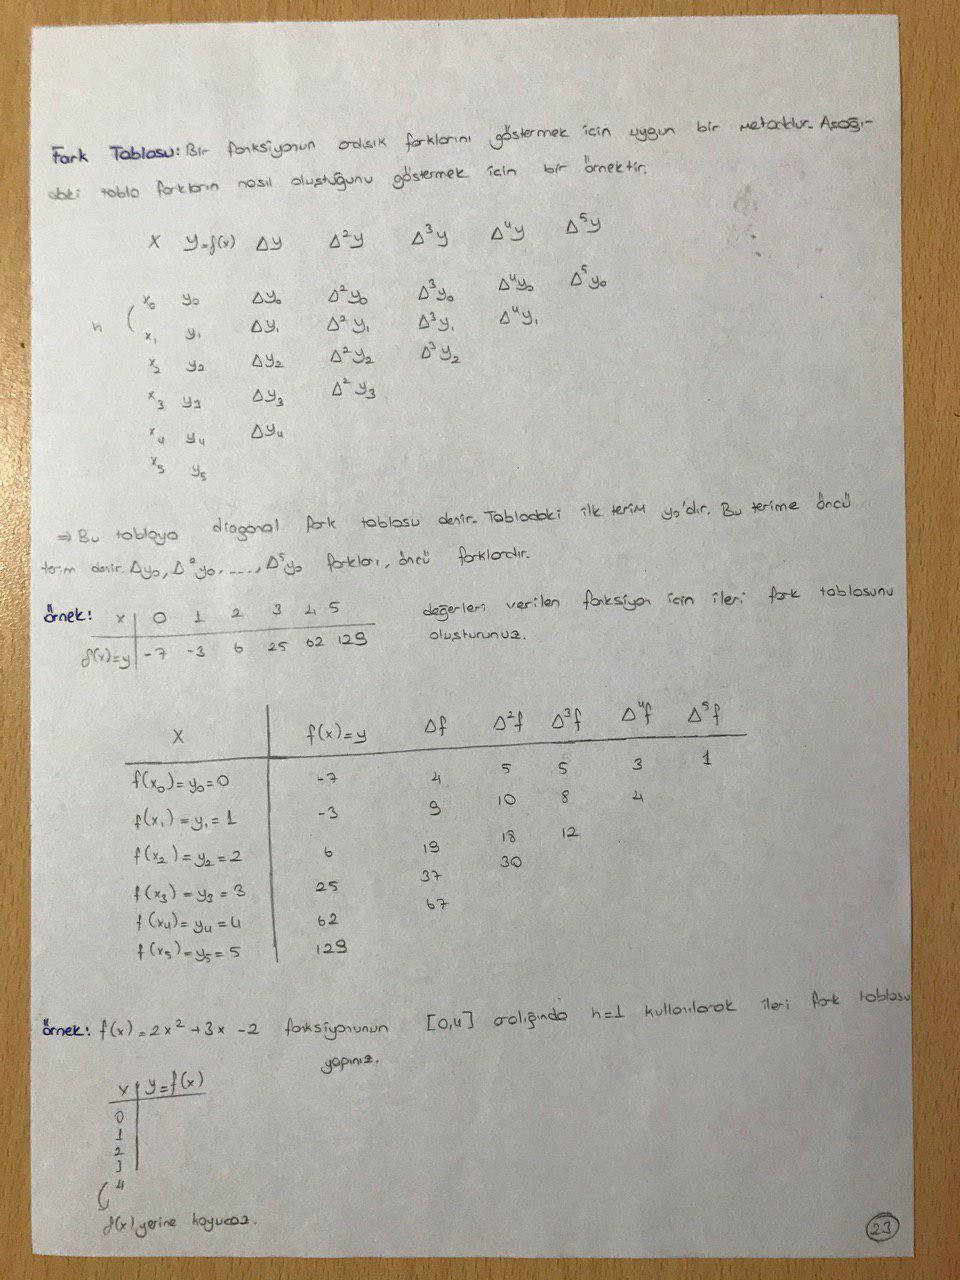 Fark Tablosu: Bir fonksiyonun ardışık farklarını göstermek için uygun bir metoddur. Aşağı-
daki tablo farkların nasıl oluştuğunu göstermek için bir örnektir.
x y=f(x) Δy Δ²y Δ³y Δ⁴y Δ⁵y
x₀ y₀ Δy₀ Δ²y₀ Δ³y₀ Δ⁴y₀ Δ⁵y₀
h ( x₁ y₁ Δy₁ Δ²y₁ Δ³y₁ Δ⁴y₁
x₂ y₂ Δy₂ Δ²y₂ Δ³y₂
x₃ y₃ Δy₃ Δ²y₃
x₄ y₄ Δy₄
x₅ y₅
⇒ Bu tabloya diagonal fark tablosu denir. Tablodaki ilk terim y₀'dır. Bu terime öncü
terim denir. Δy₀, Δ²y₀, ...., Δ⁵y₀ farkları, öncü farklardır.
örnek: x | 0 1 2 3 4 5 değerleri verilen fonksiyon için ileri fark tablosunu
f(x)=y | -7 -3 6 25 62 129 oluşturunuz.
x f(x)=y Δf Δ²f Δ³f Δ⁴f Δ⁵f
f(x₀)=y₀=0 -7 4 5 5 3 1
f(x₁)=y₁=1 -3 9 10 8 4
f(x₂)=y₂=2 6 19 18 12
f(x₃)=y₃=3 25 37 30
f(x₄)=y₄=4 62 67
f(x₅)=y₅=5 129
örnek: f(x)=2x²+3x-2 fonksiyonunun [0,4] aralığında h=1 kullanılarak ileri fark tablosu
yapınız.
x | y=f(x)
0
1
2
3
4
f(x) yerine koyucaz.
23